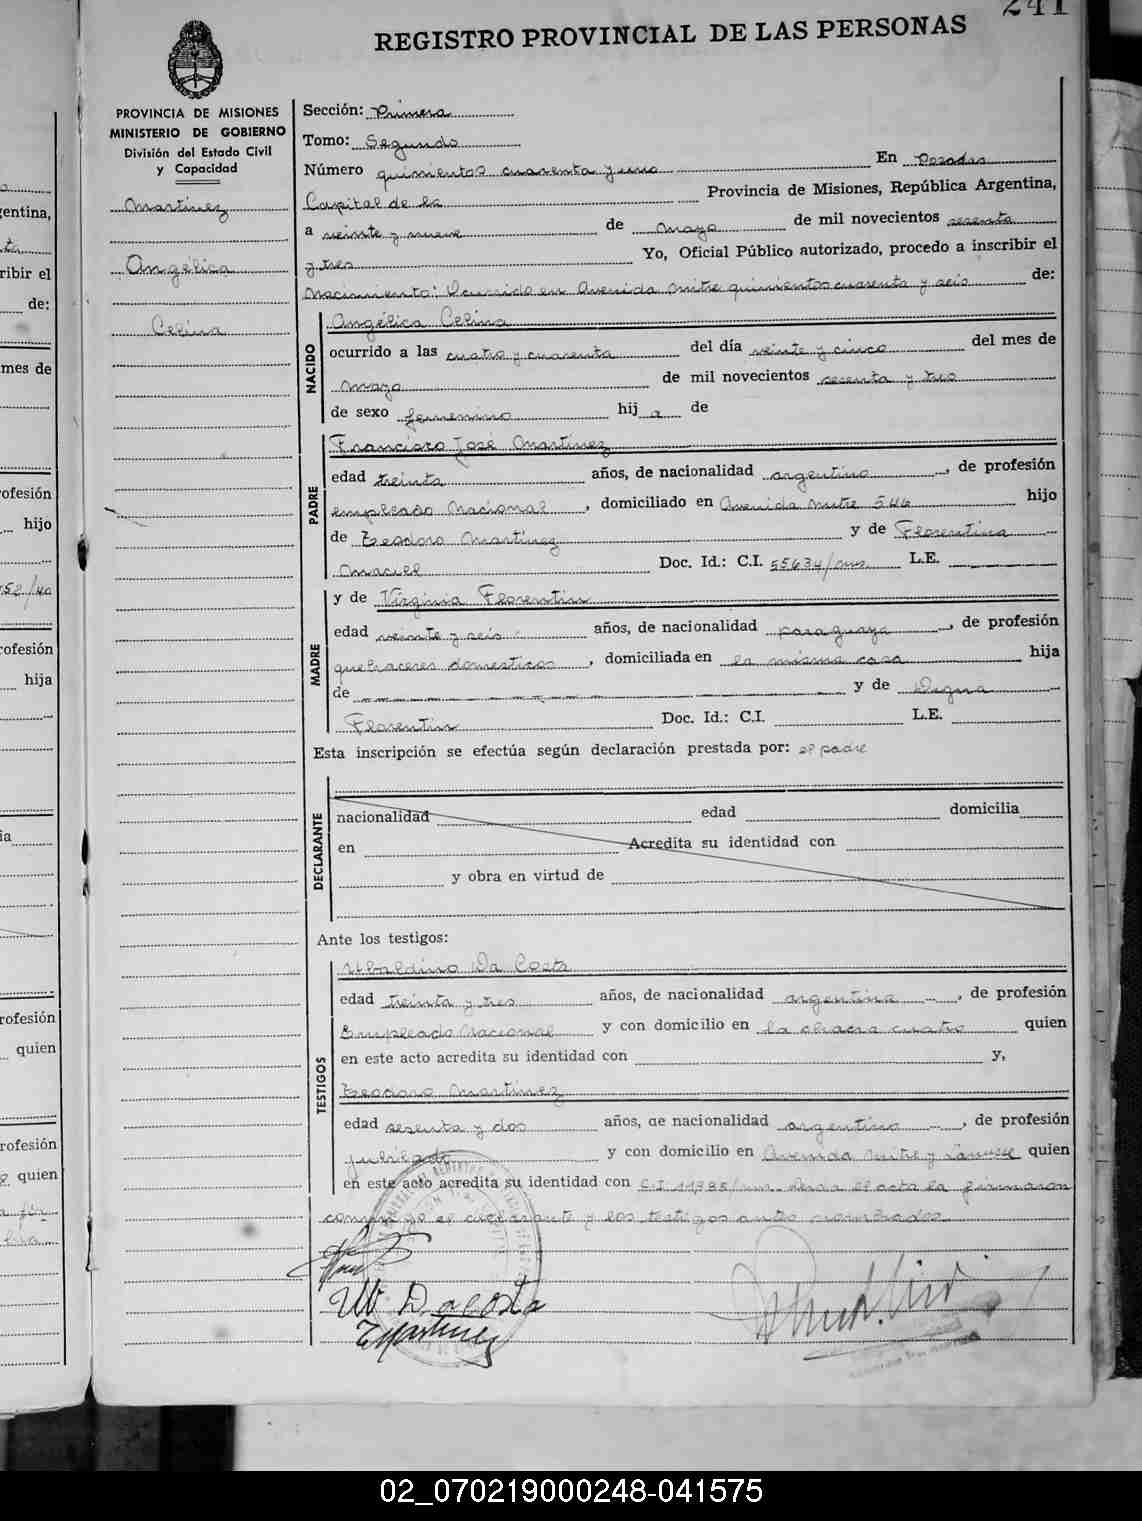 241
REGISTRO PROVINCIAL DE LAS PERSONAS
PROVINCIA DE MISIONES
MINISTERIO DE GOBIERNO
División del Estado Civil
y Capacidad
Martinez
Angélica
Celina
Sección: Primera
Tomo: Segundo
Número quinientos cuarenta y uno En Posadas
Capital de la Provincia de Misiones, República Argentina,
a veinte y nueve de Mayo de mil novecientos sesenta
y tres Yo, Oficial Público autorizado, procedo a inscribir el
Nacimiento: Ocurrido en Avenida Mitre quinientos cuarenta y seis de:
NACIDO
Angélica Celina
ocurrido a las cuatro y cuarenta del día veinte y cinco del mes de
Mayo de mil novecientos sesenta y tres
de sexo femenino hij a de
PADRE
Francisco José Martínez
edad treinta años, de nacionalidad argentino, de profesión
empleado Nacional, domiciliado en Avenida Mitre 546 hijo
de Teodoro Martínez y de Florentina
Maciel Doc. Id.: C.I. 55634/mns. L.E.
MADRE
y de Virginia Florentin
edad veinte y seis años, de nacionalidad paraguaya, de profesión
quehaceres domesticos, domiciliada en la misma casa hija
de y de Digna
Florentin Doc. Id.: C.I. L.E.
Esta inscripción se efectúa según declaración prestada por: el padre
DECLARANTE
nacionalidad edad domicilia
en Acredita su identidad con
y obra en virtud de
Ante los testigos:
TESTIGOS
Ubaldino Da Costa
edad treinta y tres años, de nacionalidad argentina, de profesión
Empleado Nacional y con domicilio en la chacra cuatro quien
en este acto acredita su identidad con y,
Teodoro Martinez
edad sesenta y dos años, de nacionalidad argentino, de profesión
jubilado y con domicilio en Avenida Mitre y Lanusse quien
en este acto acredita su identidad con C.I. 11785/mns. Leída el acta la firmaron
conmigo el declarante y los testigos antes nombrados.
Ub Dacosta
TMartinez
02_070219000248-041575